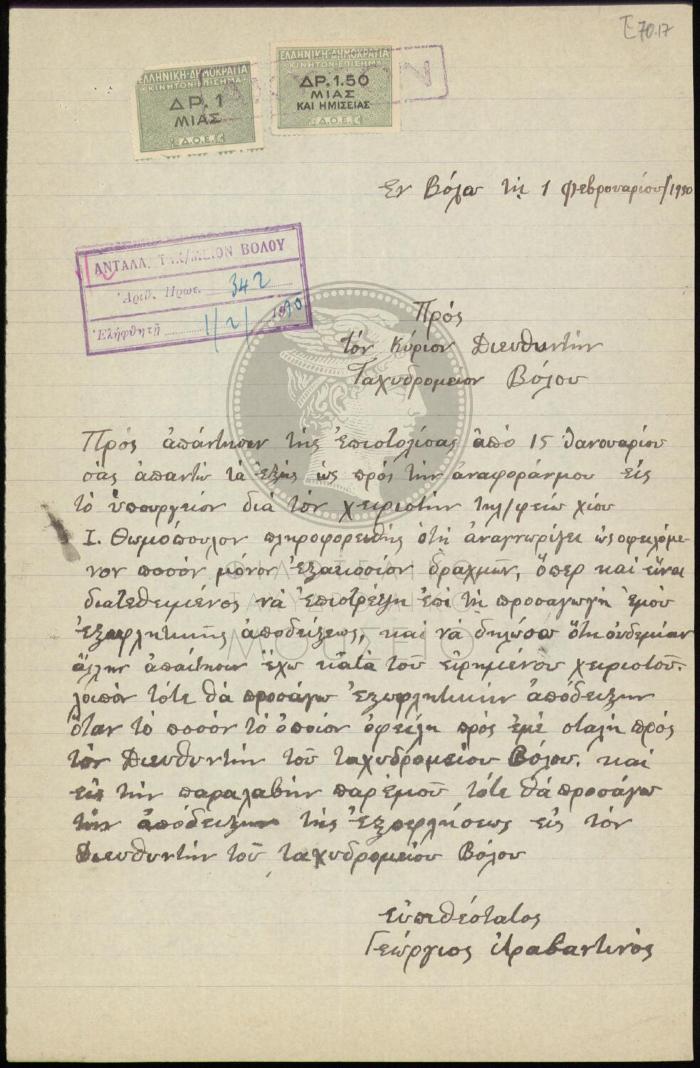 Γ 70.17
ΕΛΛΗΝΙΚΗ·ΔΗΜΟΚΡΑΤΙΑ
ΚΙΝΗΤΟΝ·ΕΠΙΣΗΜΑ
ΔΡ.1
ΜΙΑΣ
Δ.Ο.Ε.
ΕΛΛΗΝΙΚΗ·ΔΗΜΟΚΡΑΤΙΑ
ΚΙΝΗΤΟΝ·ΕΠΙΣΗΜΑ
ΔΡ.1.50
ΜΙΑΣ
ΚΑΙ ΗΜΙΣΕΙΑΣ
Δ.Ο.Ε.
Εν Βόλω τη 1 Φεβρουαρίου/1930
ΑΝΤΑΛΛ. ΤΑΧ/ΜΕΙΟΝ ΒΟΛΟΥ
Ἀριθ. Πρωτ. 342
Ἐλήφθητῇ 1/2/1930
Πρός
τόν Κύριον Διευθυντήν
Ταχυδρομείον Βόλου
Πρός ἀπάντησιν τής ἐπιστολίσας ἀπό 15 Ιανουαρίου
σας απαντώ τά ἑξῆς ὡς πρός τήν αναφοράνμου εἰς
τό ὑπουργείον διά τόν χειριστήν τηλ/φείω Χίου
Ι. Θωμόπουλον πληροφορειθής ὅτι ἀναγνωρίζει ὡς οφειλόμε
νον ποσόν μόνον ἑξακοσίον δραχμῶν, ὅπερ καί εἶναι
διατεθειμένος νά ἐπιστρέψη ἐπί τῆ προσαγωγῆ ἐμού
ἐξοφλητικῆς ἀποδείξεως, καί νά δηλώσω ὅτι οὐδεμίαν
ἄλλην ἀπαίτησιν ἔχω κατά τοῦ εἰρημένου χειριστοῦ.
λοιπόν τότε θά προσάγω ἐξωφλητικήν ἀπόδειξιν
ὅταν τό ποσόν τό ὁποίον ὀφείλη πρός ἐμέ σταλῆ πρός
τόν Διευθυντήν τοῦ ταχυδρομείου Βόλου. καί
εἰς τήν παραλαβήν παρ'ἐμοῦ τότε θά προσάγω
τήν ἀπόδειξιν τῆς ἐξοφλήσεως εἰς τόν
Διευθυντήν τοῦ ταχυδρομείου Βόλου
εὐπιθέστατος
Γεώργιος Ἀραβαντινός
ΜΟΥΣΕΙΟ